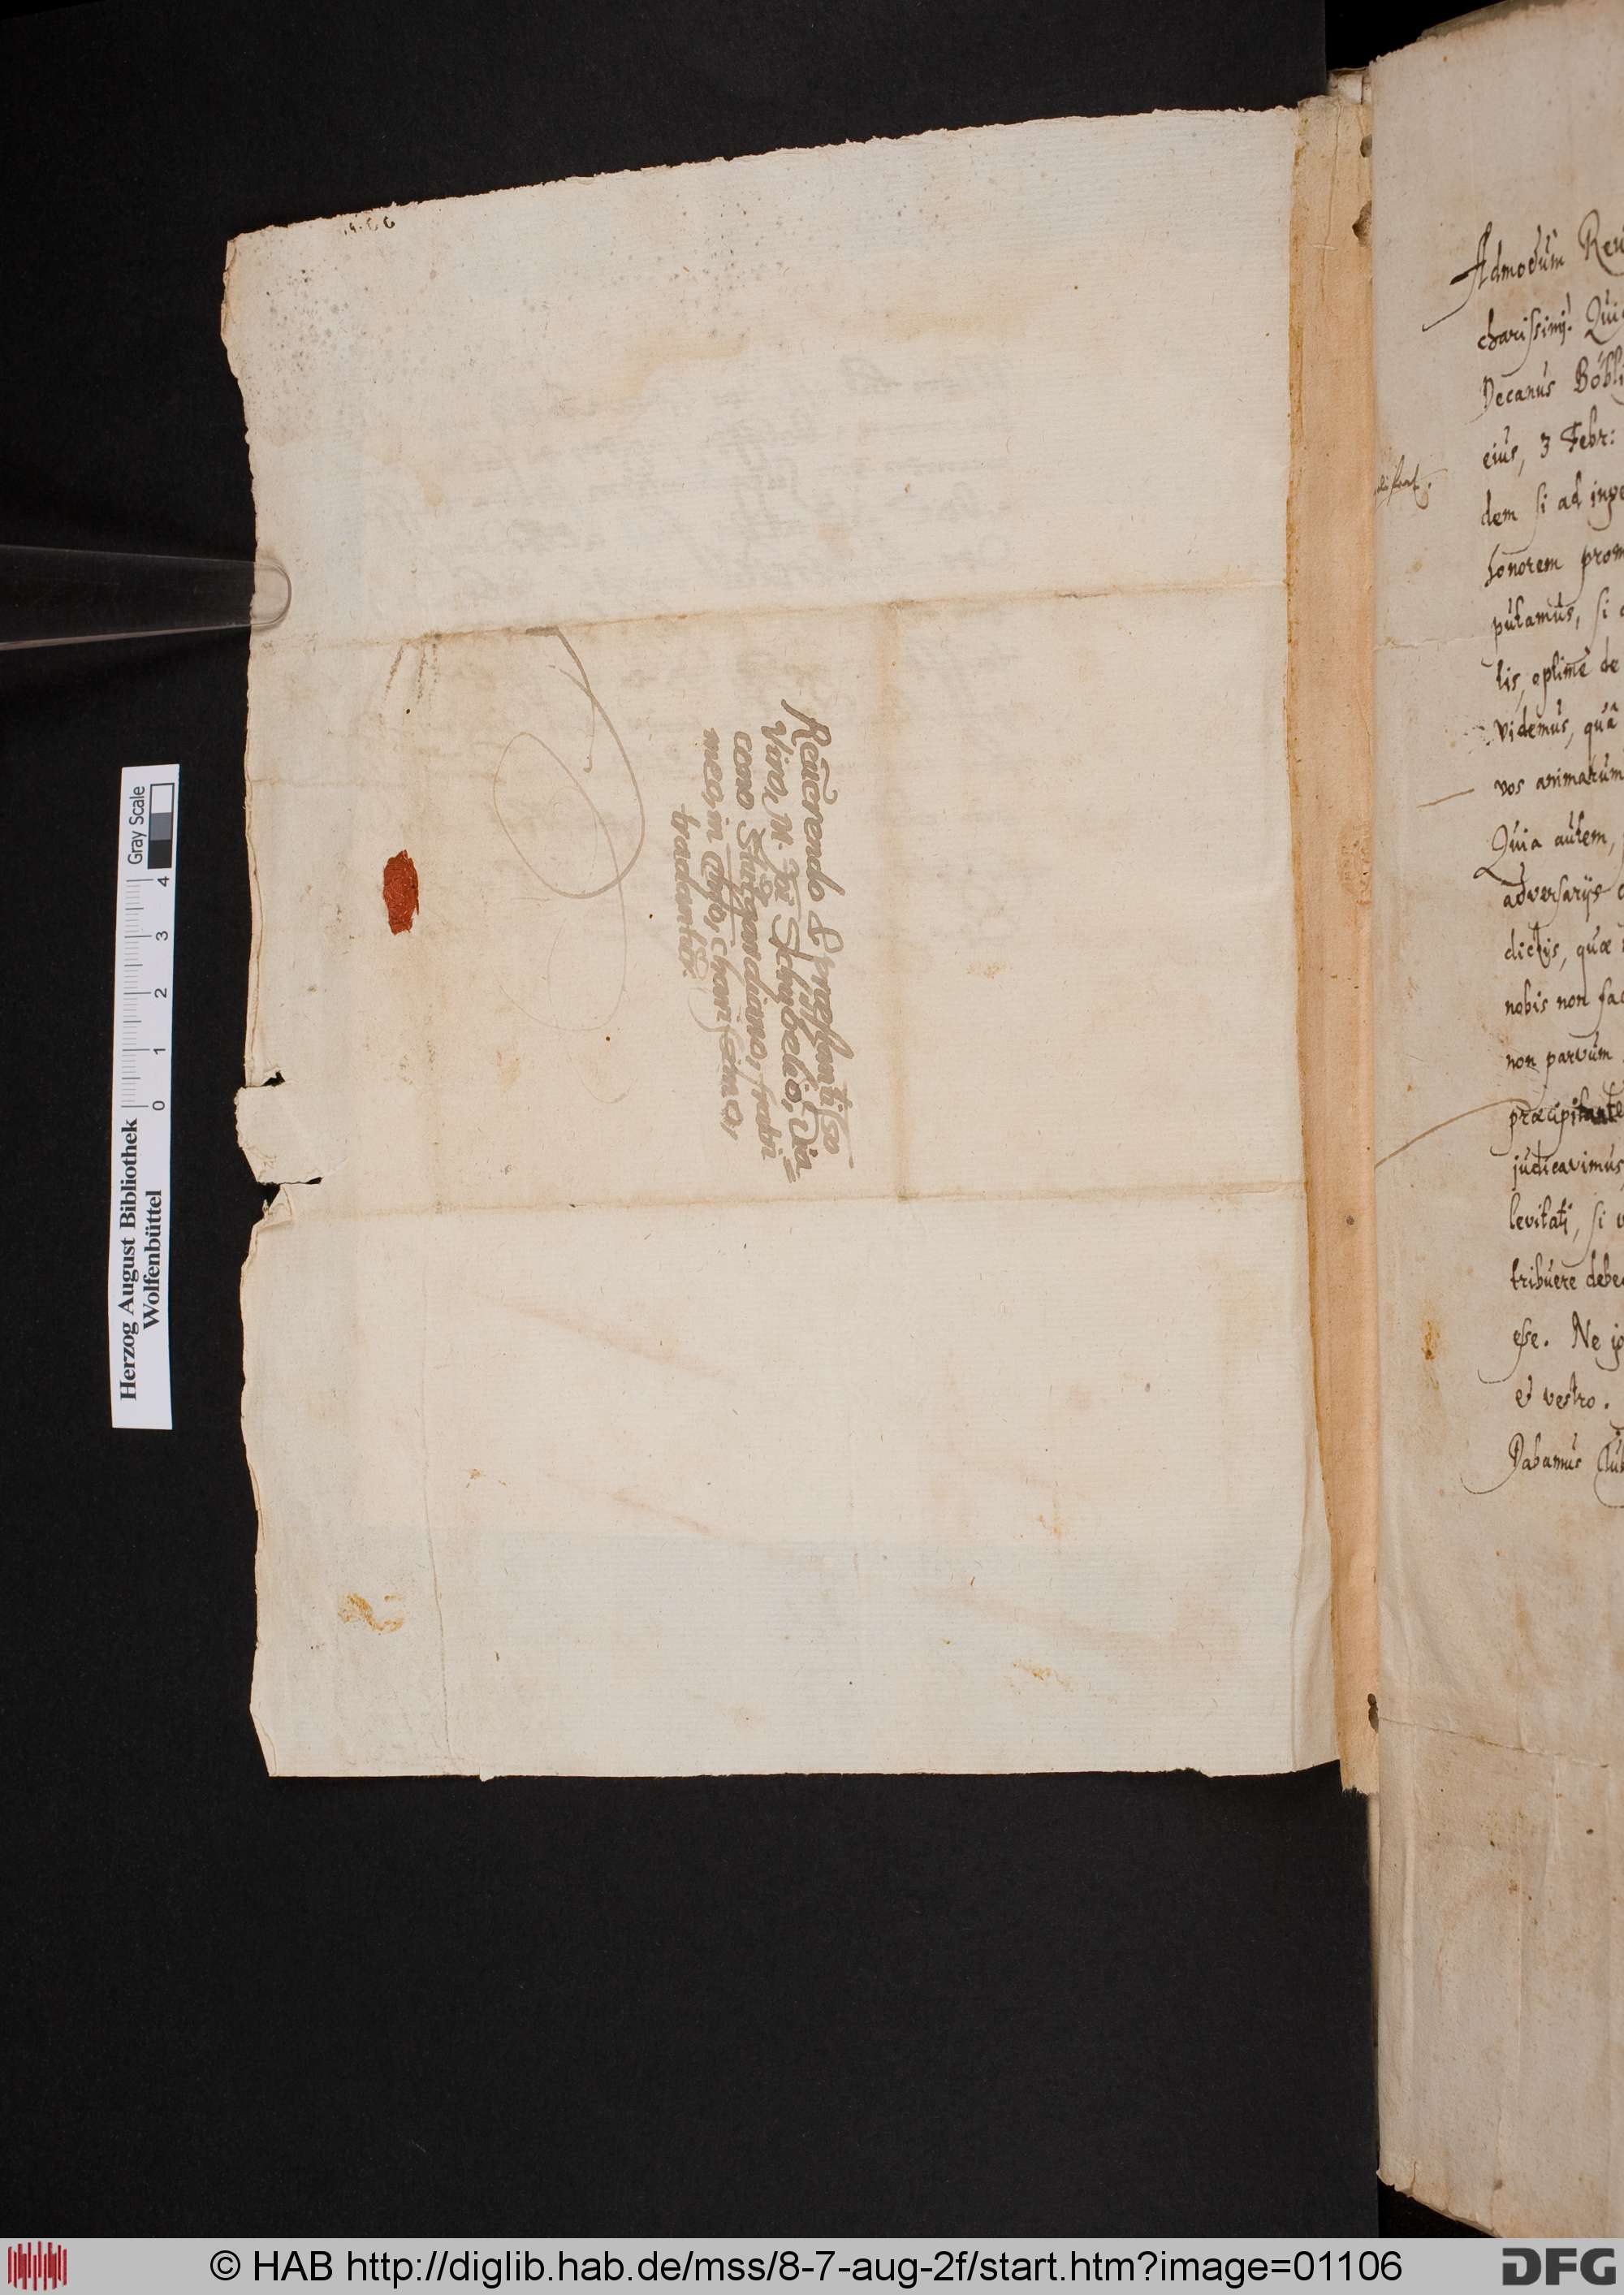 Reverendo & praestantiss.
Viro, M. Schübelio, Dia=
cono Stutgardiano, fratri
meo, in Chro, charissimo,
tradantur.
Admodum Rev
charissimj. Qui
Decanus Böbli
eius, 3 Febr:
dem si ad inpe
honorem prom
putamus, si
lis, optimè de
videmus, quâ
vos animarum
Quia autem,
adversarijs
dictis, quæ
nobis non fac
non parvum
præcipitante
judicavimus
levitati, si v
tribuere debe
esse. Ne ip
et vestro.
Dabamus Tub
Herzog August Bibliothek
Wolfenbüttel
0 1 2 3 4
Gray Scale
© HAB http://diglib.hab.de/mss/8-7-aug-2f/start.htm?image=01106
DFG